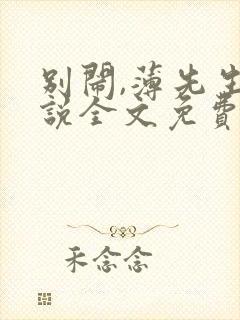 別鬧,薄先生
說全文免費
禾念念